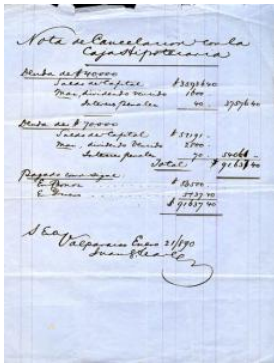 Nota de Cancelacion con la
Caja Hipotecaria
Deuda de $ 40000
Saldo de Capital
Mas, dividendo Vencido 1000
Interes penales 40. 37576.40
Deuda de $ 70000
Saldo de Capital
Mas, dividendo Vencido
Interes penales 70. 54061 -
Total $ 91637.40
Pagado como sigue
En Bonos $ 88500.
3137.40
$ 91637.40
Valparaiso Enero 21/890
Juan